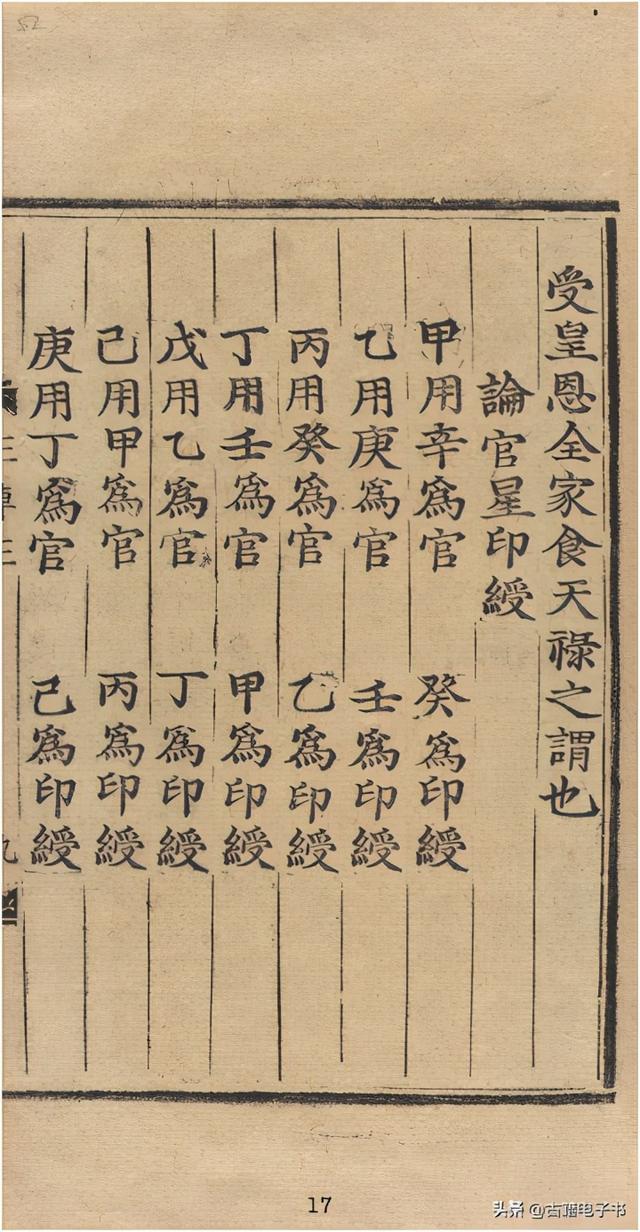 受皇恩全家食天祿之謂也
論官星印綬
甲用辛爲官　癸爲印綬
乙用庚爲官　壬爲印綬
丙用癸爲官　乙爲印綬
丁用壬爲官　甲爲印綬
戊用乙爲官　丁爲印綬
己用甲爲官　丙爲印綬
庚用丁爲官　己爲印綬
17
头条 @古籍电子书